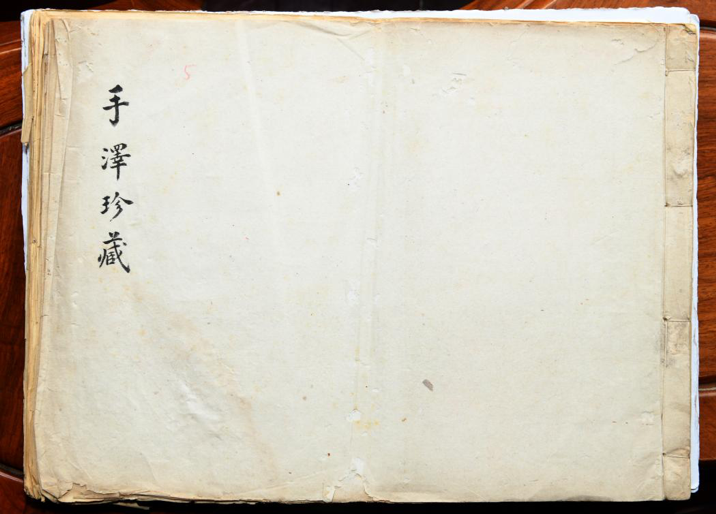 手澤珍藏
5